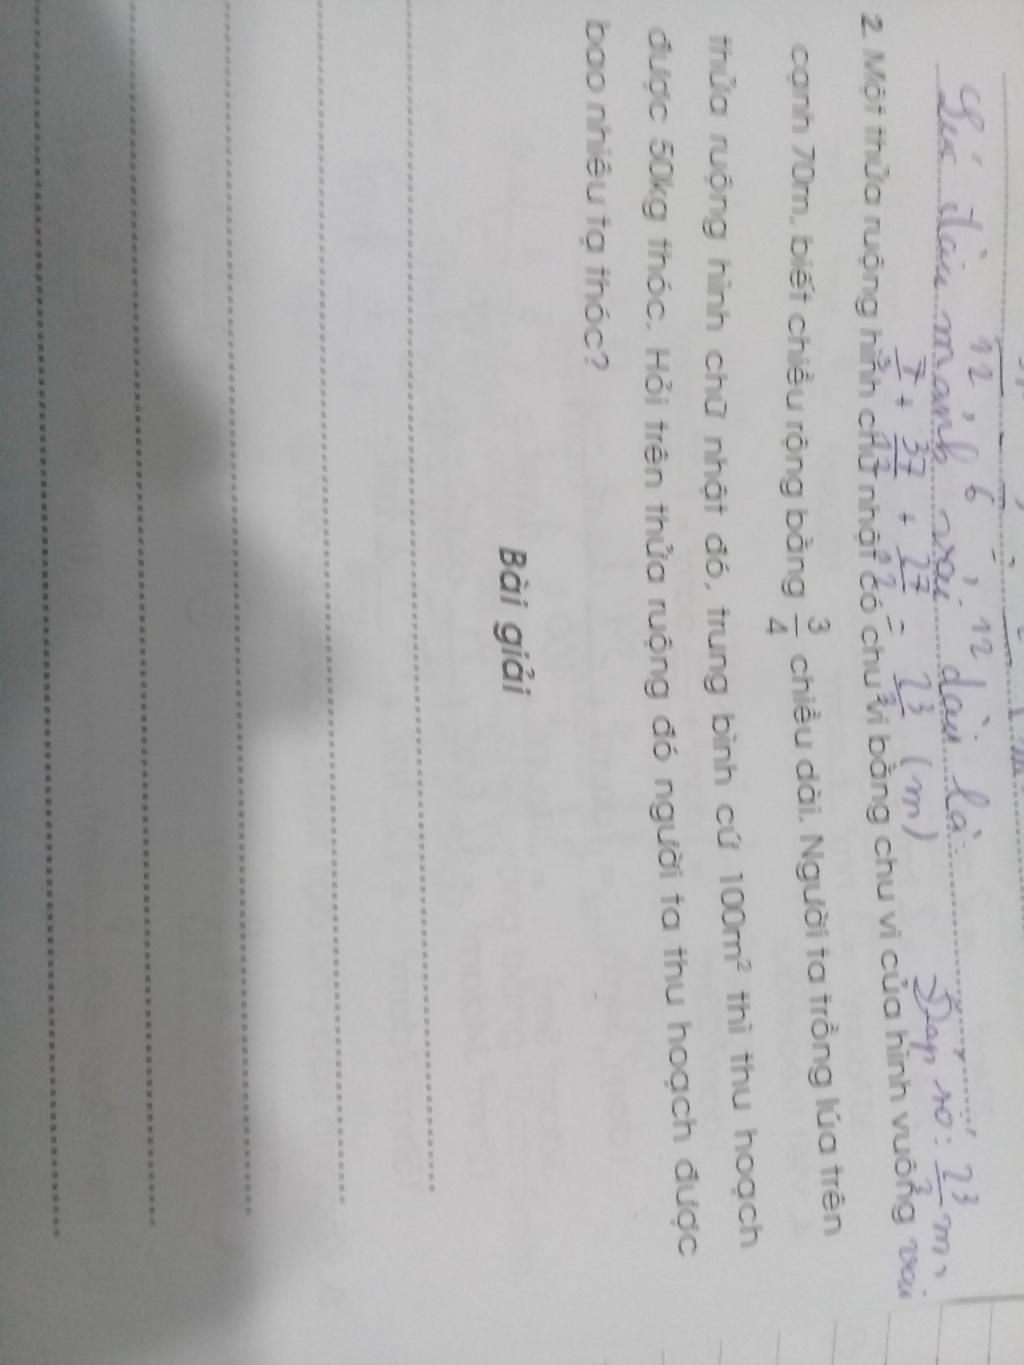 Số đầu mảnh vải dài là
12, 6, 12,
7 + 37 + 27 = 23 (m)
Đáp số: 23 m vải
2. Một thửa ruộng hình chữ nhật có chu vi bằng chu vi của hình vuông
cạnh 70m, biết chiều rộng bằng 3/4 chiều dài. Người ta trồng lúa trên
thửa ruộng hình chữ nhật đó, trung bình cứ 100m² thì thu hoạch
được 50kg thóc. Hỏi trên thửa ruộng đó người ta thu hoạch được
bao nhiêu tạ thóc?
Bài giải